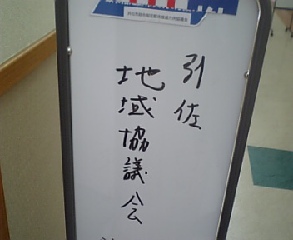 引佐
地域協議会